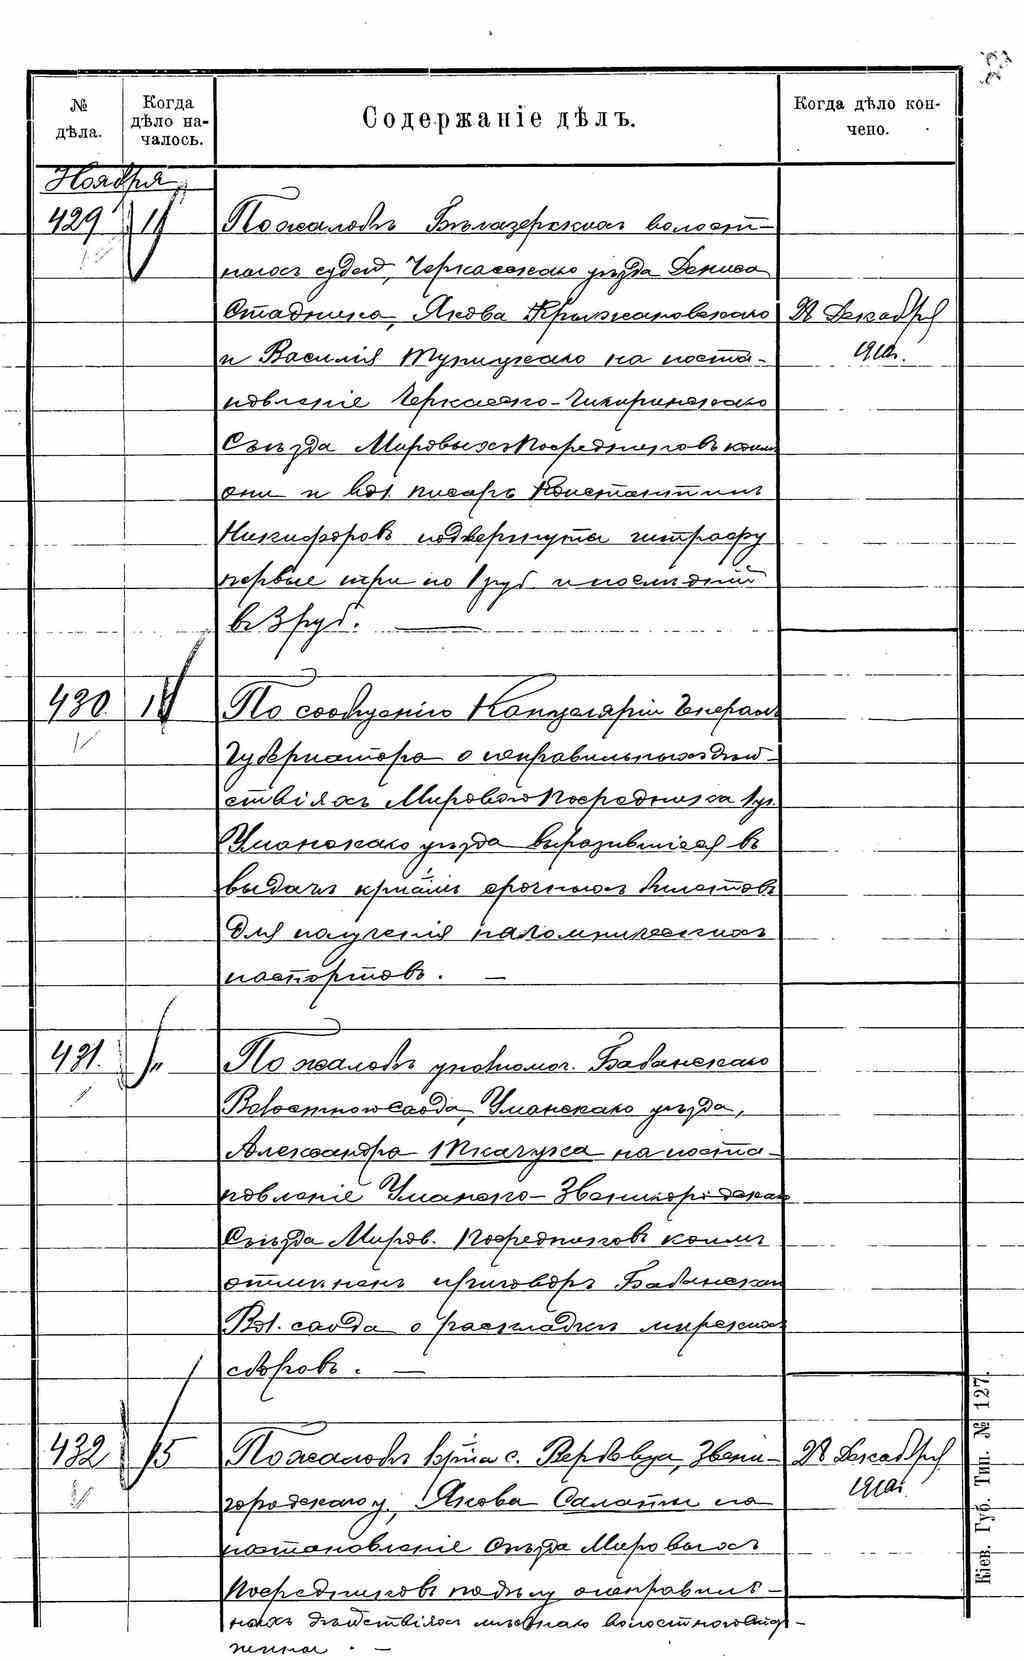 № дѣла.
Когда дѣло началось.
Содержаніе дѣлъ.
Когда дѣло кончено.
Ноября
429 11
По жалобѣ Бѣлазерскихъ волост-
ныхъ судей, Черкасскаго уѣзда Дениса
Стадника, Якова Крыжановскаго
и Василія на поста-
новленіе Черкасско-Чигиринскаго
Съѣзда Мировыхъ Посредниковъ коимъ
они и вол. писарь Константинъ
Никифоровъ подвергнуты штрафу
первые три по 1 руб. и послѣдній
въ 3 руб.
Декабря
1910г.
430
По сообщенію Канцеляріи Генералъ
Губернатора о неправильныхъ дѣй-
ствіяхъ Мирового Посредника 1 уч.
Уманскаго уѣзда выразившіяся въ
выдачѣ срочныхъ билетовъ
для полученія паломническихъ
паспортовъ.
431. "
По жалобѣ уполномоч. Бабанскаго
Волостного схода, Уманскаго уѣзда,
Александра Ткачука на поста-
новленіе Уманско-Звенигородскаго
Съѣзда Миров. Посредниковъ коимъ
отмѣненъ приговоръ Бабанскаго
Вол. схода о раскладкѣ мірскихъ
сборовъ.
432 15
По жалобѣ с. Вербовца, Звени-
городскаго у., Якова Салаты на
постановленіе Съѣзда Мировыхъ
Посредниковъ по дѣлу о неправиль-
ныхъ дѣйствіяхъ мѣстнаго волостного стар-
шины.
Декабря
1910г.
Кіев. Губ. Тип. № 127.